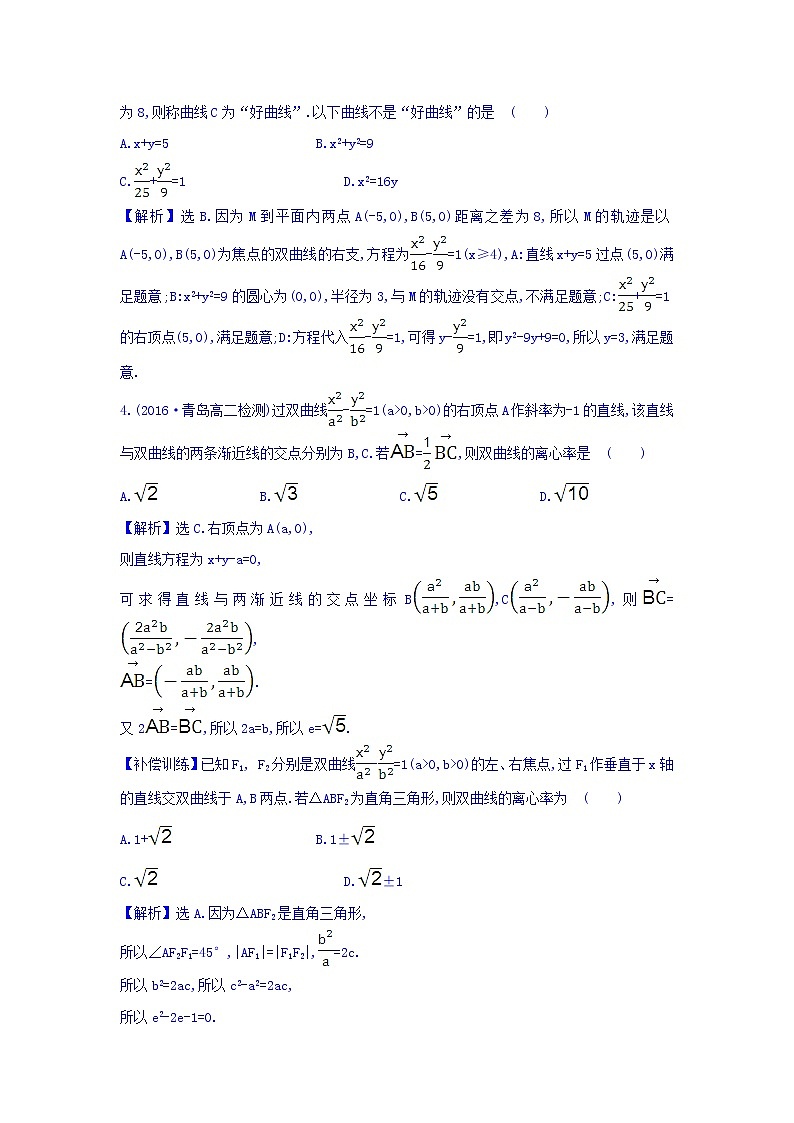 为8,则称曲线C为“好曲线”.以下曲线不是“好曲线”的是 (  )
A.x+y=5 B.x²+y²=9
C.x²/25+y²/9=1 D.x²=16y
【解析】选B.因为M到平面内两点A(-5,0),B(5,0)距离之差为8,所以M的轨迹是以
A(-5,0),B(5,0)为焦点的双曲线的右支,方程为x²/16-y²/9=1(x≥4),A:直线x+y=5过点(5,0)满
足题意;B:x²+y²=9的圆心为(0,0),半径为3,与M的轨迹没有交点,不满足题意;C:x²/25+y²/9=1
的右顶点(5,0),满足题意;D:方程代入x²/16-y²/9=1,可得y-y²/9=1,即y²-9y+9=0,所以y=3,满足题
意.
4.(2016·青岛高二检测)过双曲线x²/a²-y²/b²=1(a>0,b>0)的右顶点A作斜率为-1的直线,该直线
与双曲线的两条渐近线的交点分别为B,C.若→AB=1/2→BC,则双曲线的离心率是 (  )
A.√2 B.√3 C.√5 D.√10
【解析】选C.右顶点为A(a,0),
则直线方程为x+y-a=0,
可求得直线与两渐近线的交点坐标B(a²/(a+b),ab/(a+b)),C(a²/(a−b),−ab/(a−b)),则→BC=
(2a²b/(a²−b²),−2a²b/(a²−b²)),
→AB=(−ab/(a+b),ab/(a+b)).
又2→AB=→BC,所以2a=b,所以e=√5.
【补偿训练】已知F₁, F₂分别是双曲线x²/a²-y²/b²=1(a>0,b>0)的左、右焦点,过F₁作垂直于x轴
的直线交双曲线于A,B两点.若△ABF₂为直角三角形,则双曲线的离心率为 (  )
A.1+√2 B.1±√2
C.√2 D.√2±1
【解析】选A.因为△ABF₂是直角三角形,
所以∠AF₂F₁=45°,|AF₁|=|F₁F₂|,b²/a=2c.
所以b²=2ac,所以c²-a²=2ac,
所以e²-2e-1=0.